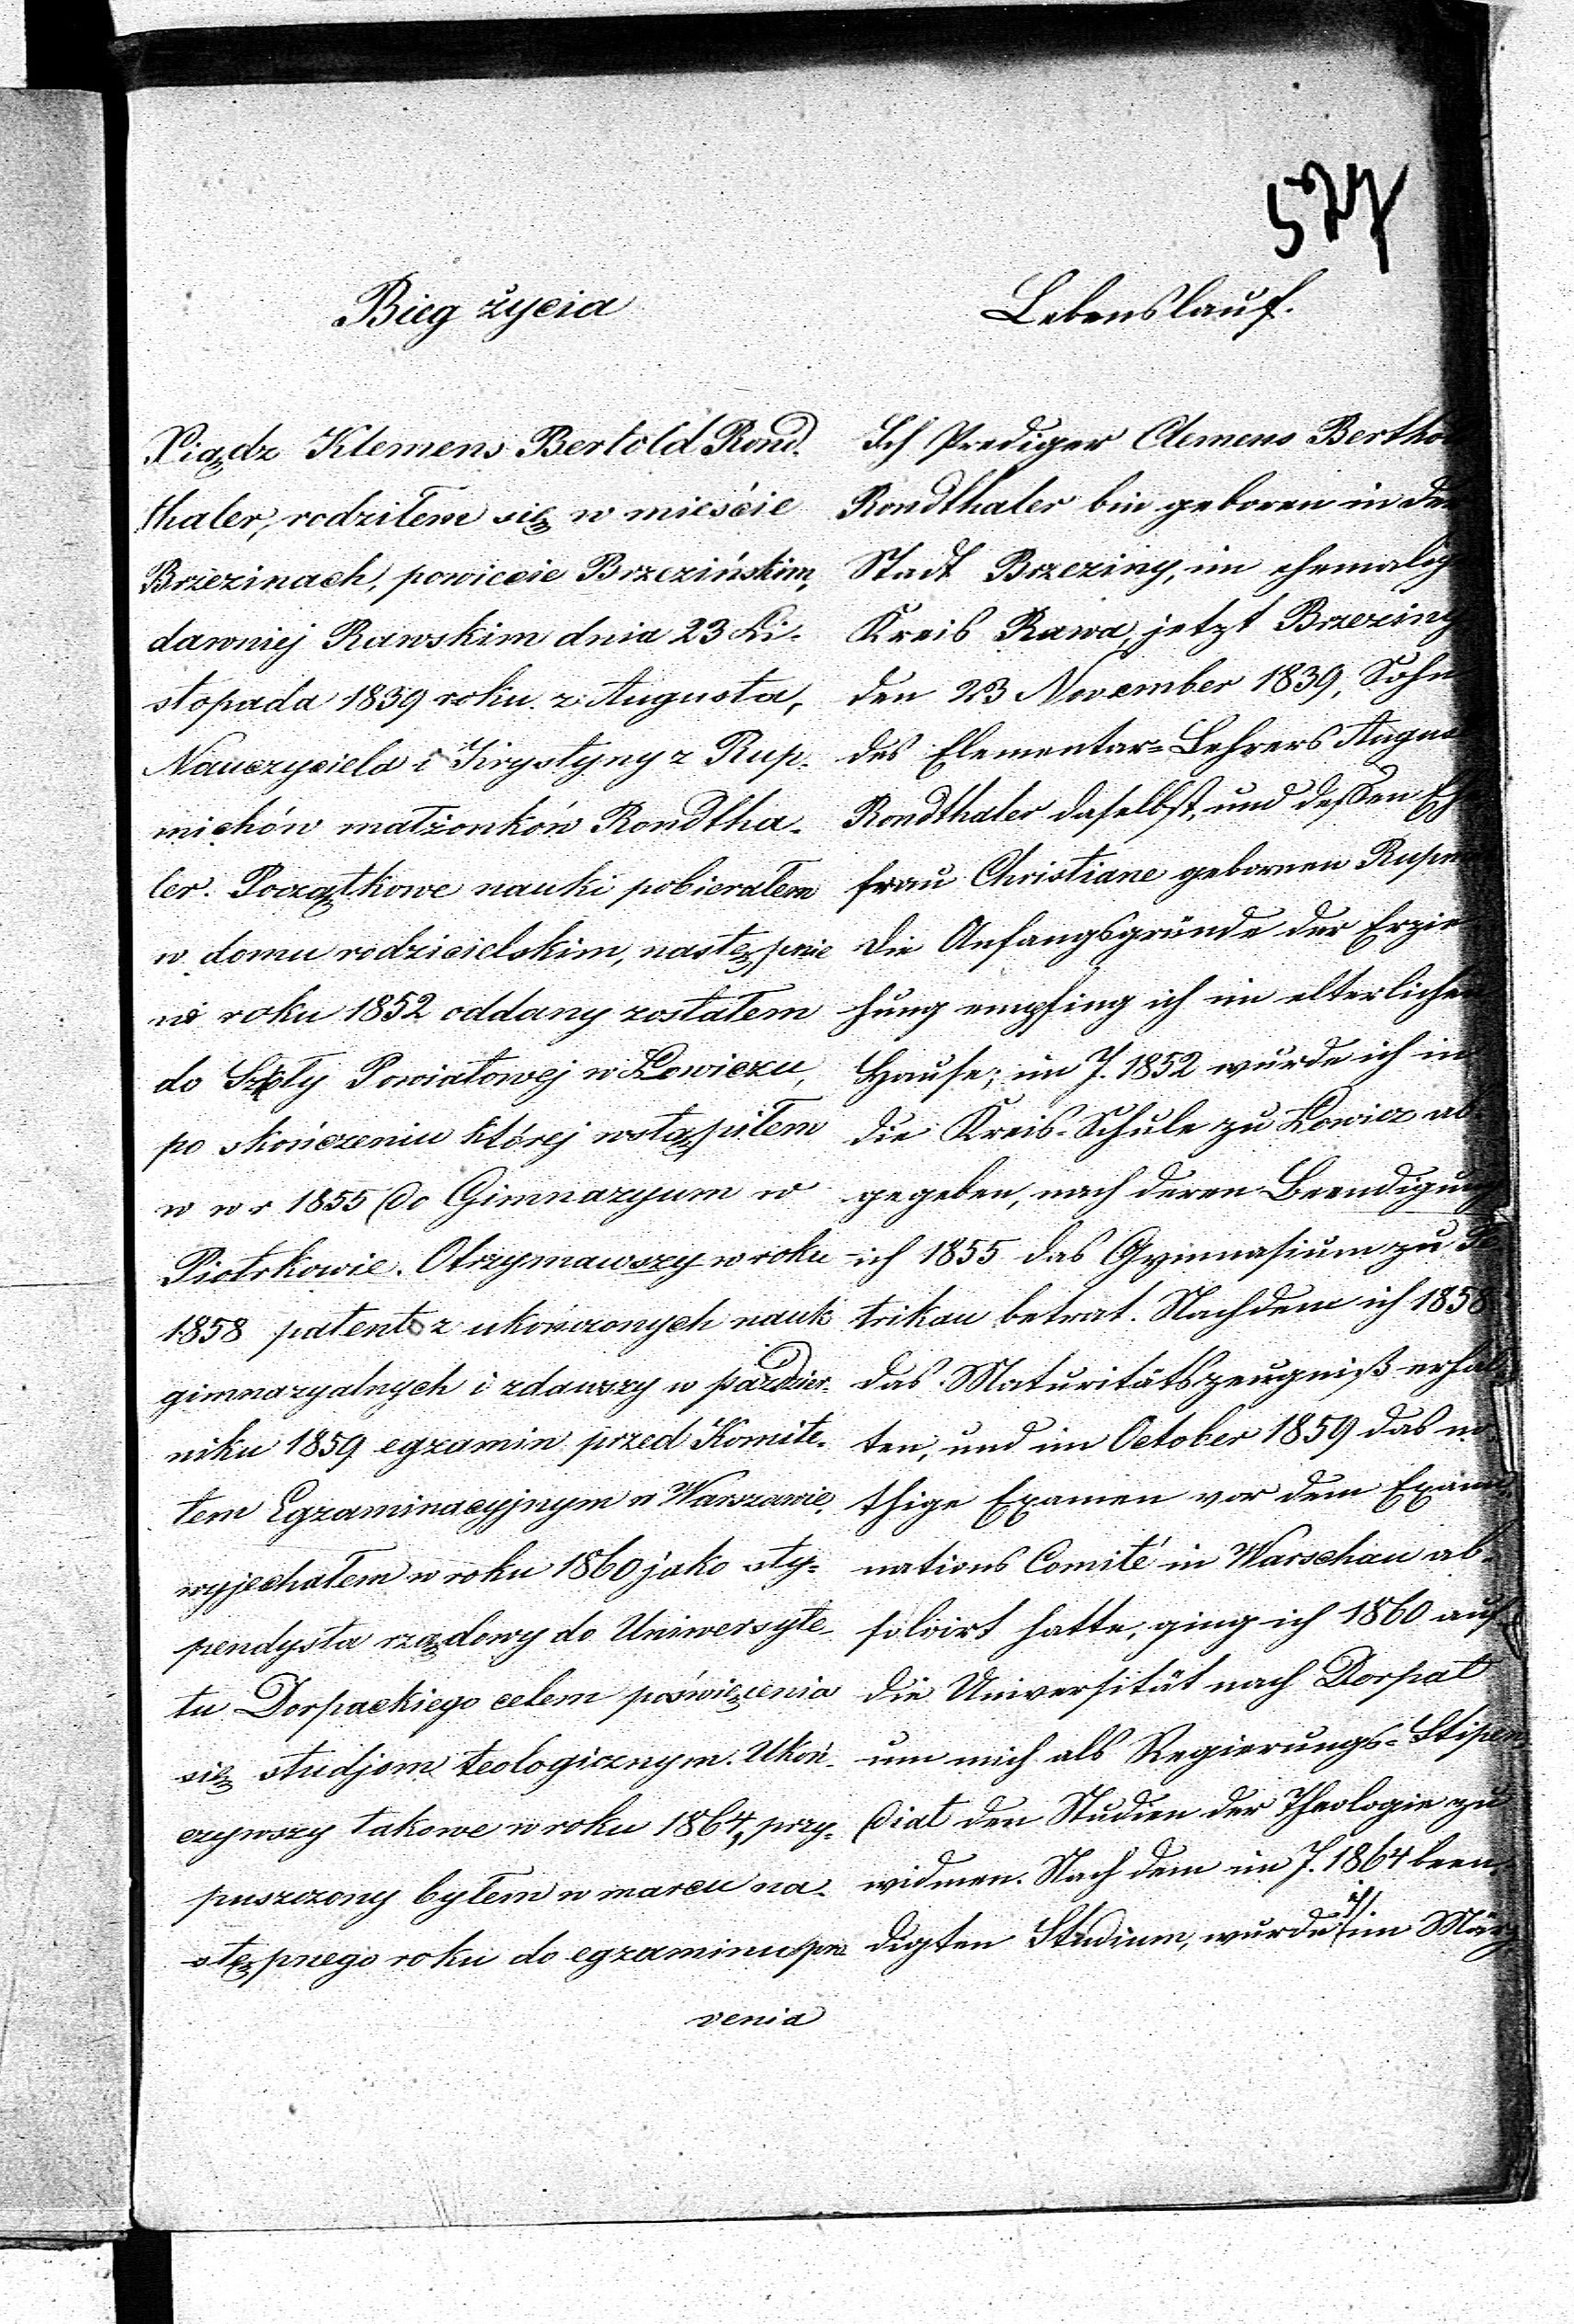 577
Bieg życia
Xiądz Klemens Bertold Rond-
thaler, rodziłem się w mieście
Brzezinach, powiecie Brzezińskim,
dawniej Rawskim dnia 23 Li-
stopada 1839 roku z Augusta,
Nauczyciela i Krystyny z Rup-
michów małżonków Rondtha-
ler. Początkowe nauki pobierałem
w domu rodzicielskim, następnie
w roku 1852 oddany zostałem
do Szkoły Powiatowej w Łowiczu,
po skończeniu której wstąpiłem
w w r 1855 do Gimnazyum w
Piotrkowie. Otrzymawszy w roku
1858 patent z ukończonych nauk
gimnazyalnych i zdawszy w paździer-
niku 1859 egzamin przed Komite-
tem Egzaminacyjnym w Warszawie,
wyjechałem w roku 1860 jako sty-
pendysta rządowy do Uniwersyte-
tu Dorpackiego celem poświęcenia
się studjom teologicznym. Ukoń-
czywszy takowe w roku 1864, przy-
puszczony byłem w marcu na-
stępnego roku do egzaminu pro
venia
Lebenslauf.
Ich Prediger Clemens Berthol
Rondthaler bin geboren in der
Stadt Brzeziny, im ehemalig
Kreis Rawa, jetzt Brzeziny
den 23 November 1839, Sohn
des Elementar-Lehrers August
Rondthaler daselbst, und dessen Ehe
frau Christiane gebornen Rupm
Die Anfangsgründe der Erzie
hung empfing ich im elterlichen
Hause; im J. 1852 wurde ich in
die Kreis-Schule zu Łowicz ab-
gegeben, nach deren Beendigung
ich 1855 das Gymnasium zu Pe
trikau betrat. Nachdem ich 1858
das Maturitätszeugniß erhal-
ten, und im October 1859 das nö-
thige Examen vor dem Exami-
nations Comité in Warschau ab-
solvirt hatte, ging ich 1860 auf
die Universität nach Dorpat
um mich als Regierungs-Stipen-
diat den Studien der Theologie zu
widmen. Nach dem im J. 1864 been-
digten Studium, wurde ich im März